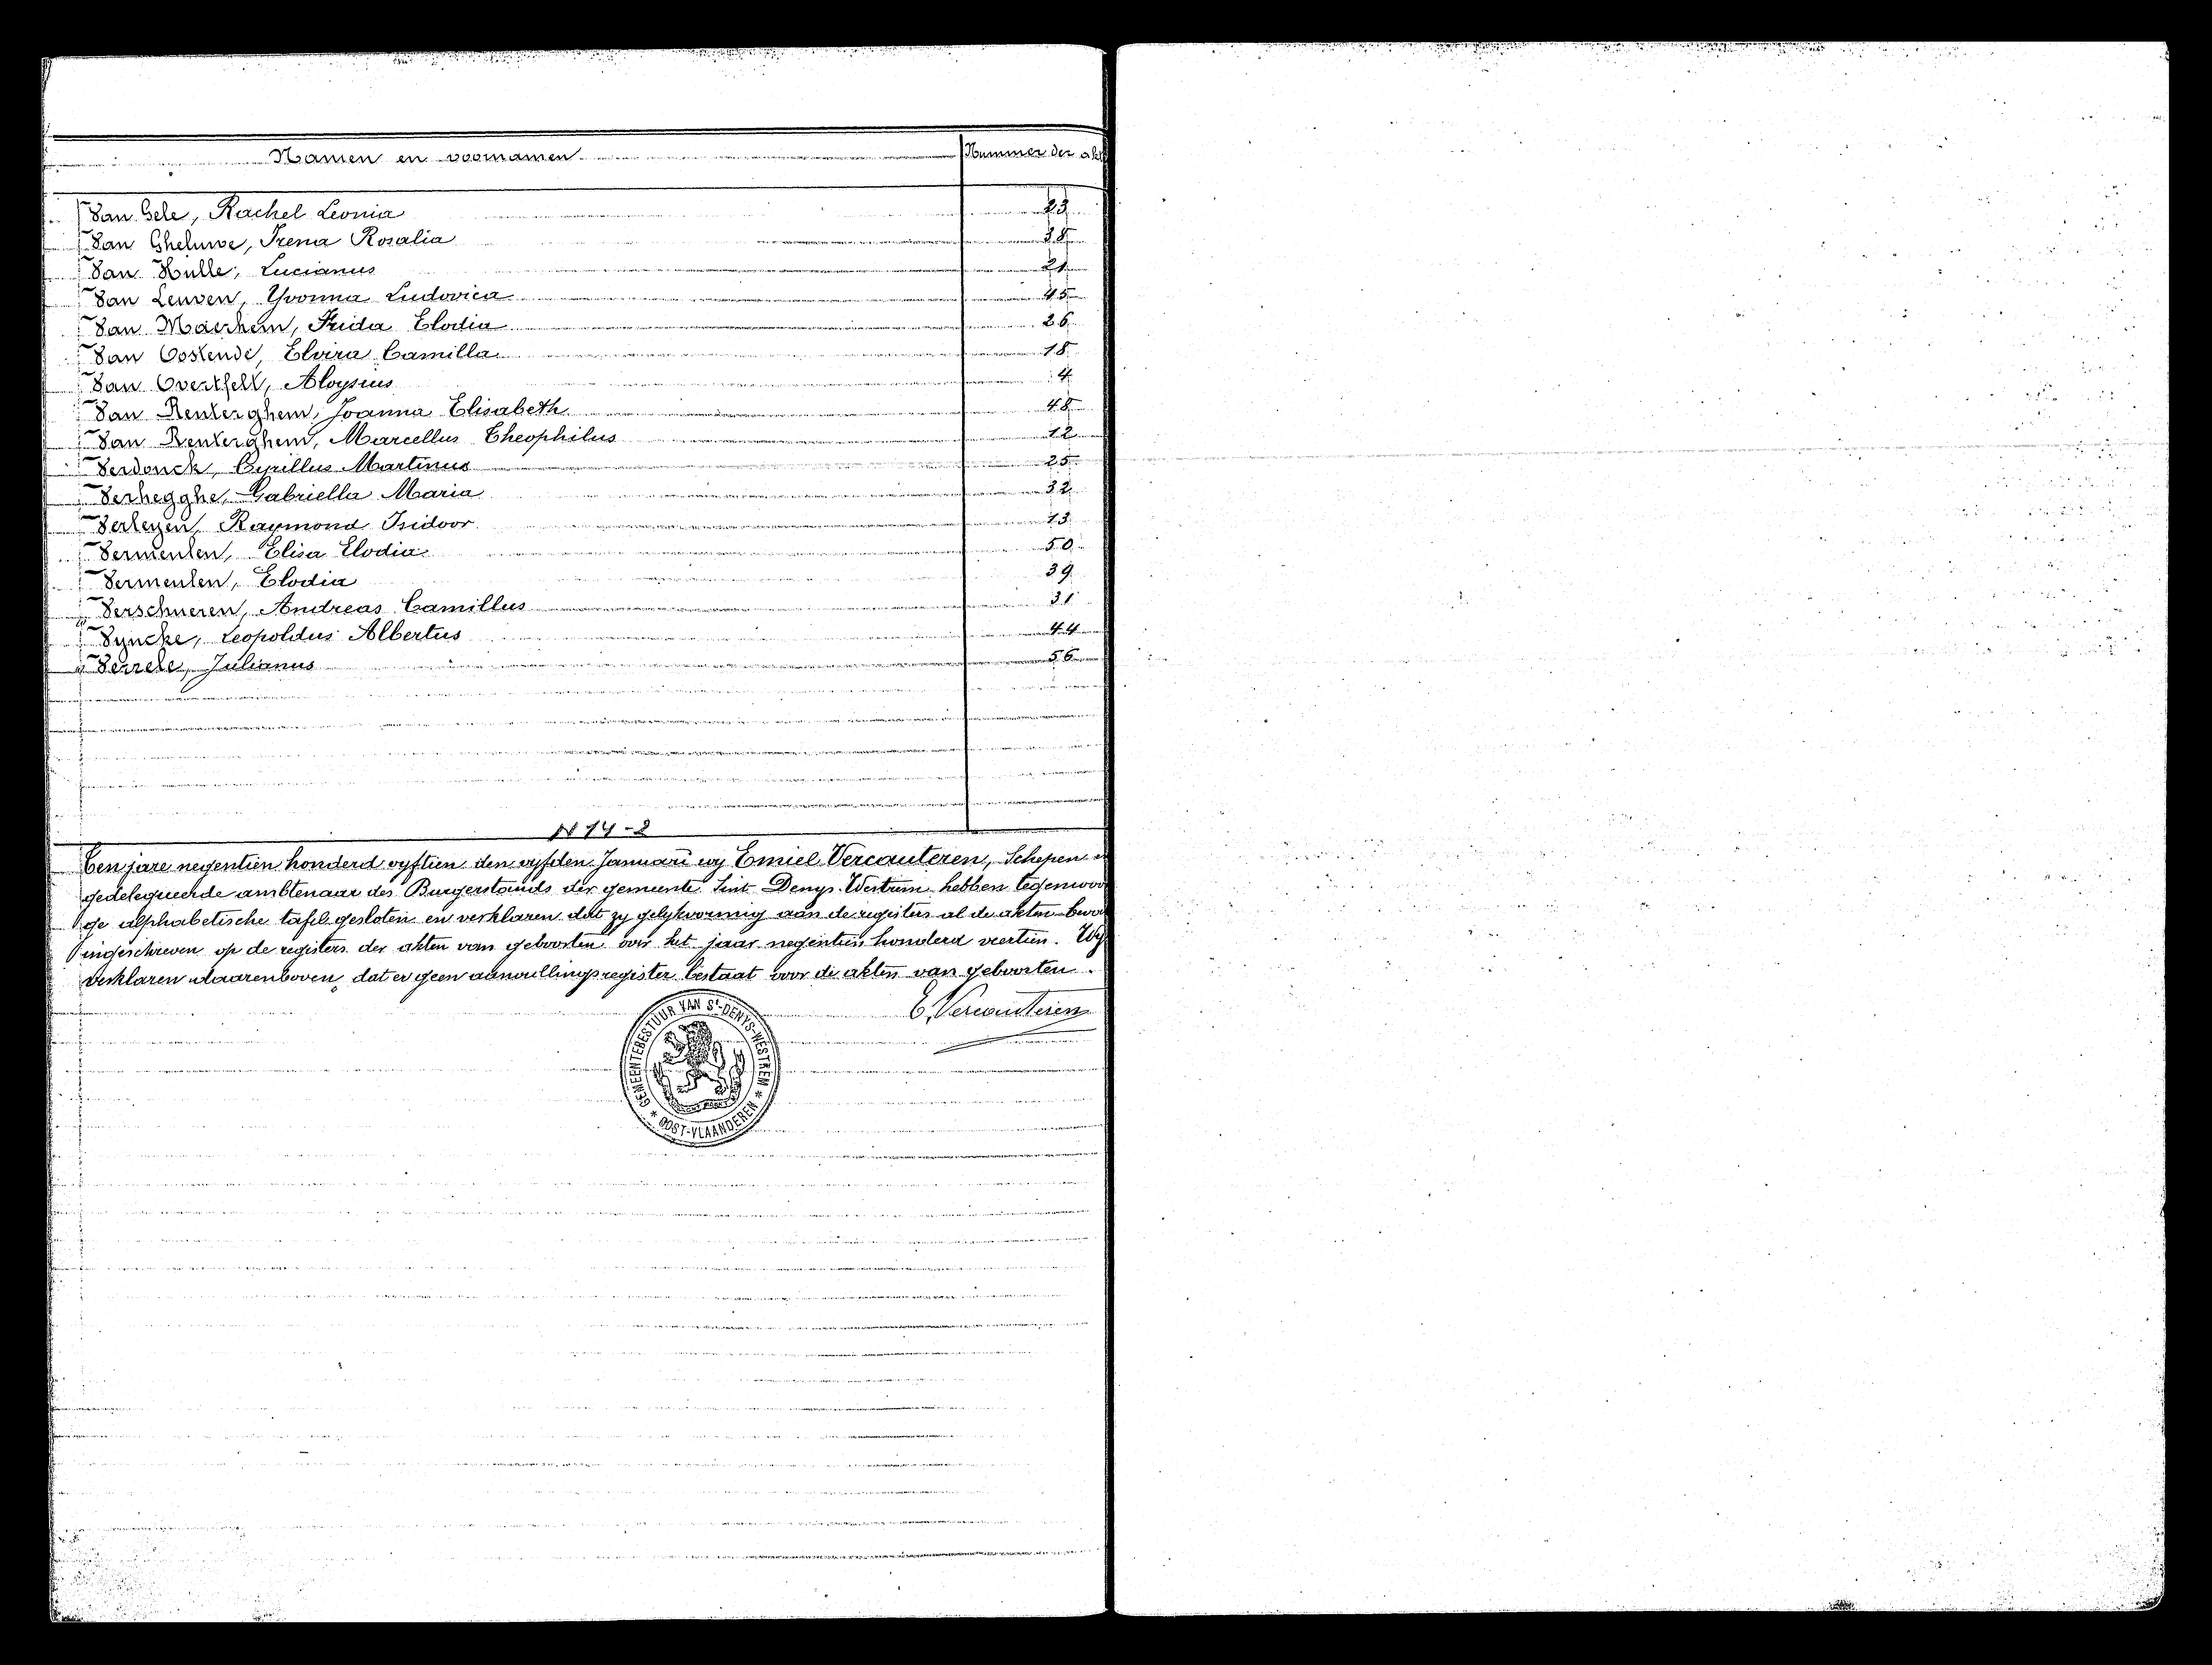 Namen en voornamen Nummer der akt
Van Gele, Rachel Leonia 23
Van Gheluwe, Irena Rosalia 38
Van Hulle, Lucianus 21
Van Leuven, Yvonna Ludovica 45
Van Maerhem, Frida Elodia 26
Van Oostende, Elvira Camilla 18
Van Overtfelt, Aloysius 4
Van Renterghem, Joanna Elisabeth 48
Van Renterghem, Marcellus Theophilus 12
Verdonck, Cyrillus Martinus 25
Verhegghe, Gabriella Maria 32
Verleyen, Raymond Isidoor 13
Vermeulen, Elisa Elodia 50
Vermeulen, Elodia 39
Verschueren, Andreas Camillus 31
Vyncke, Leopoldus Albertus 44
Verrele, Julianus 56
N 14-2
Ten jare negentien honderd vyftien den vyfden Januari wy Emiel Vercauteren, Schepen
gedelegueerde ambtenaar des Burgerstands der gemeente Sint Denys-Westrem hebben tegenwoor
ge alphabetische tafel gesloten en verklaren dat zy gelykvormig aan de registers al de akten bevat
ingeschreven op de registers der akten van geboorten over het jaar negentien honderd veertien. Wy
verklaren daarenboven, dat er geen aanvullingsregister bestaat voor de akten van geboorten.
E. Vercauteren
GEMEENTEBESTUUR VAN St-DENYS-WESTREM * OOST-VLAANDEREN *